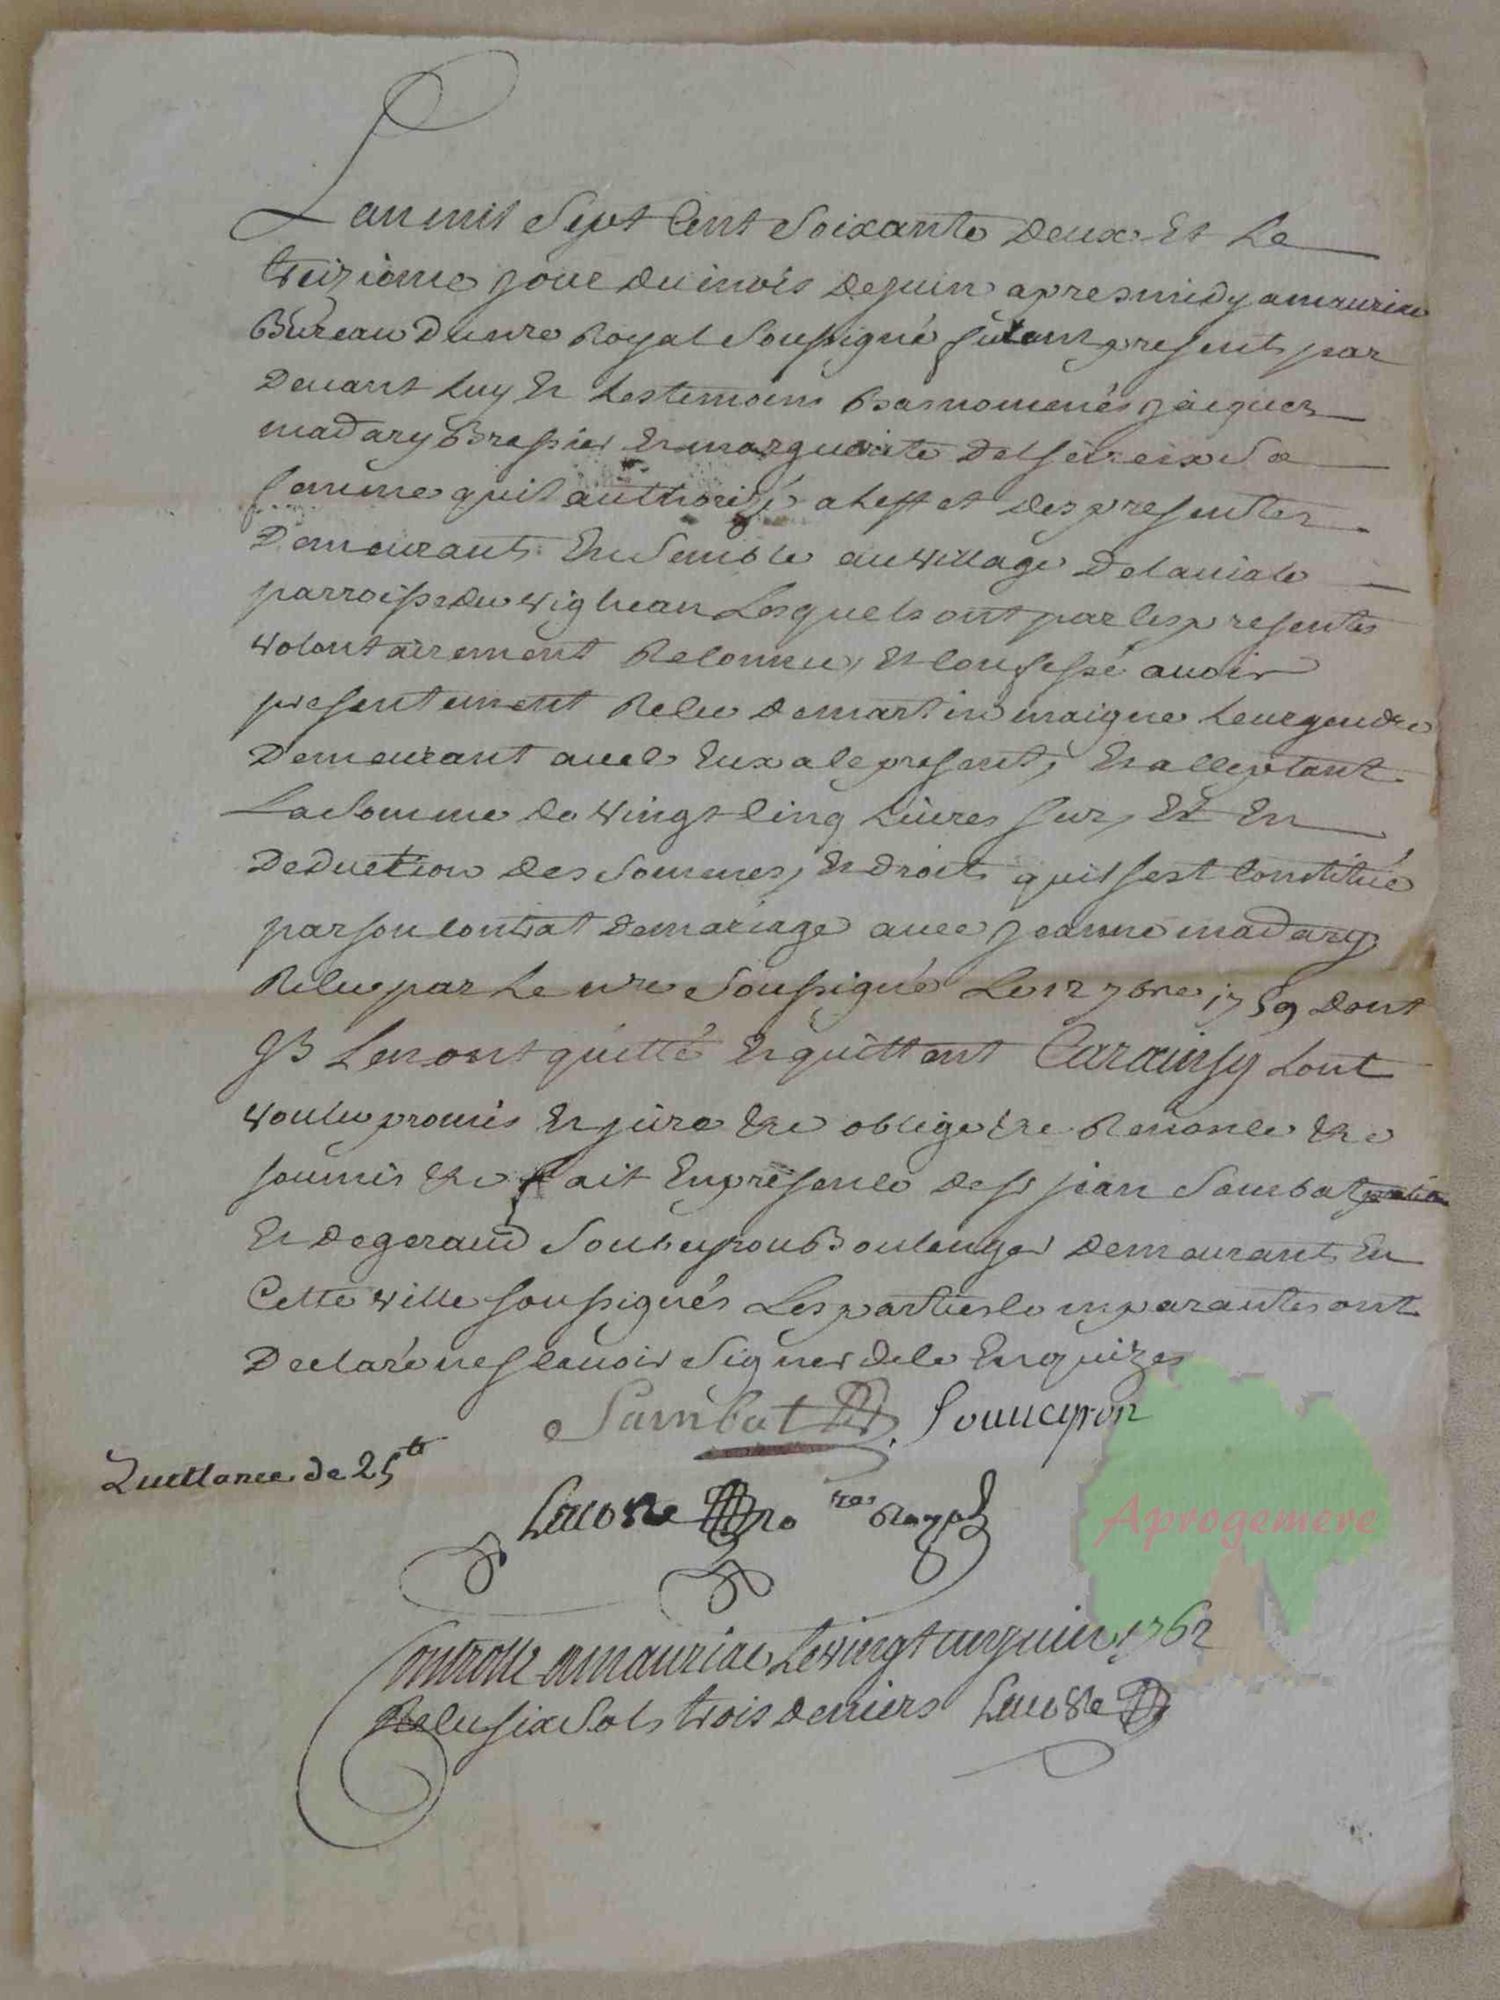 L'an mil Sept Cent Soixante Deux Et Le
treizieme jour du mois de juin apres midy a mauriac
Bureau du nre Royal Soussigné furent presents par
Devant Luy Et Les temoins Bas nommés jacques
madary Brassier Et marguerite Sa
femme quil authorize a Leffet des presentes
Demeurants Ensemble au village Delaviale
parroisse du vighean Lesquels ont par les presentes
volontairement Reconnu, Et confessé avoir
presentement Recu de martin maigne Leur gendre
Demeurant avec Eux a ce present, Et acceptant
La Somme de vingt Cinq Livres sur, Et En
Deduction des Sommes, Et droits quil sest Constitué
par son contrat de mariage avec jeanne madary
Recu par Le nre Soussigné Le 12 7bre 1759 Dont
Lenont quitté Et quittent Car ainsy Lont
voulu promis Et juré &c obligé &c Renoncé &c
soumis &c fait En presence de sr jean Sambat
Et de geraud Souveyron Boulanger Demeurants En
Cette ville soussignés Les parties comparantes ont
Declaré ne scavoir Signer de ce Enquizes
Sambat Souveyron
Quittance de 25 tt
Lacoste nre Royal
Controllé a mauriac Le vingt un juin 1762
Recu six Sols trois deniers Lacoste
Aprogemere